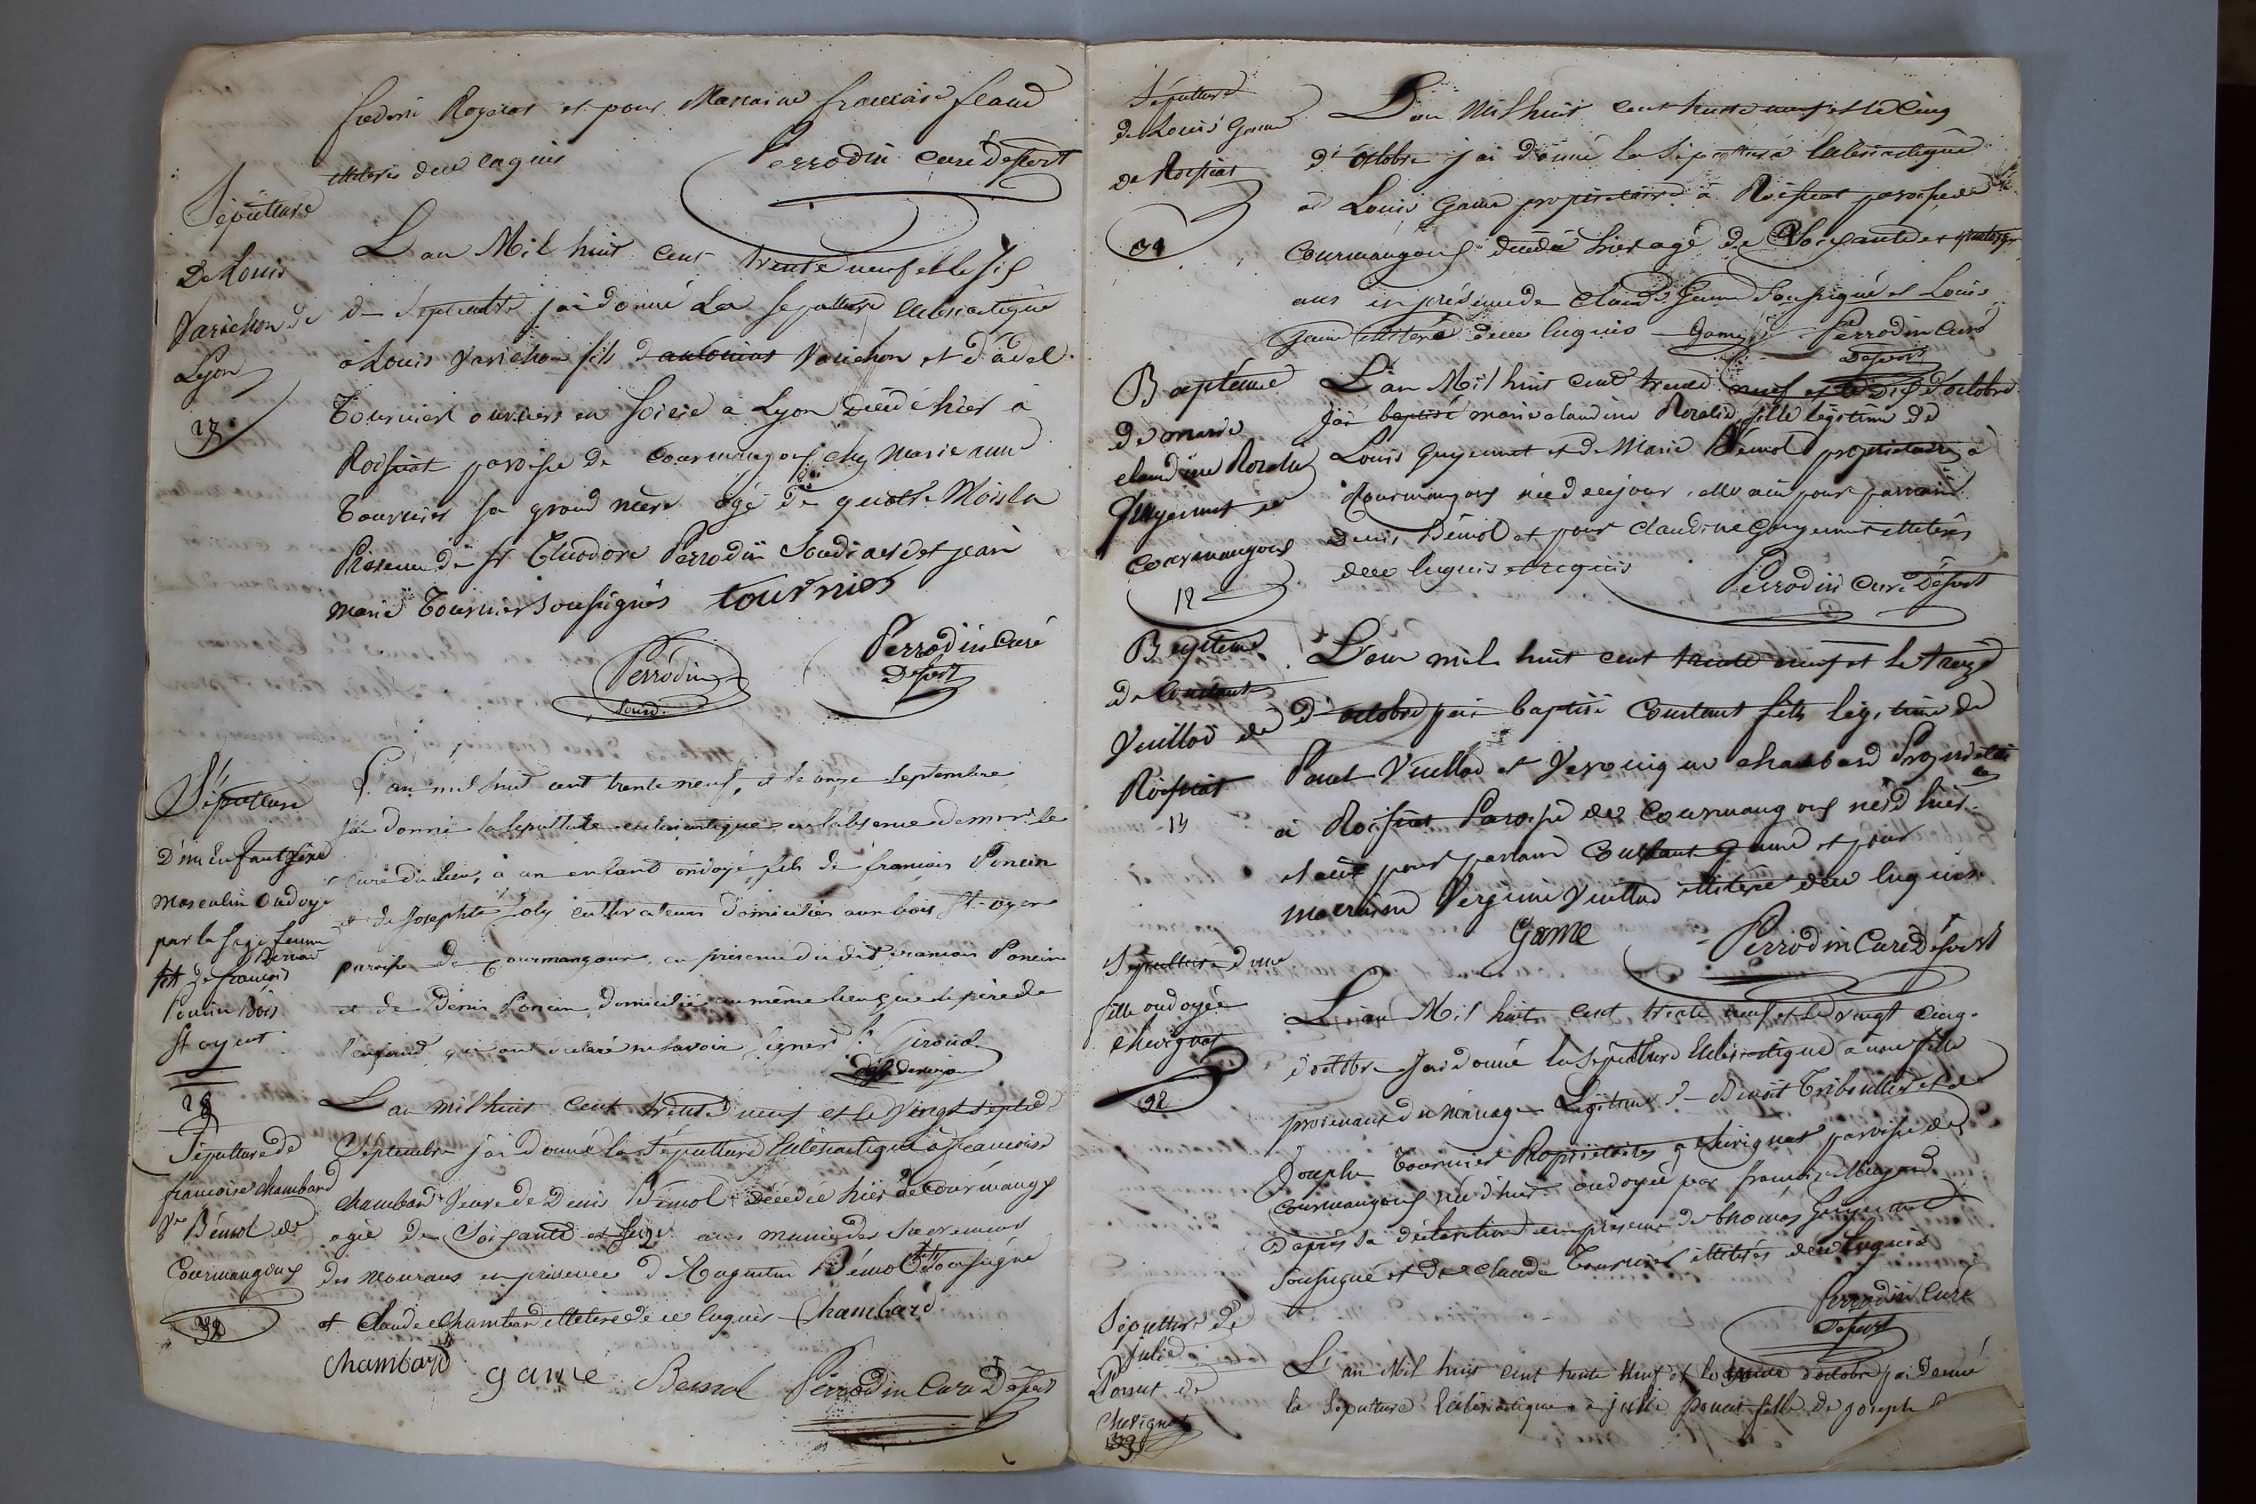 et pour Marraine francoise
Perrodin curé Desert
Sépulture
De Louis
Varichon de
Lyon
L'an Mil huit cent trente neuf et le six
de Septembre j'ai donné La Sepulture
à Louis Varichon fils d'antoine Varichon et d'adel
Tournier ouvriers en Soierie à Lyon décédé hier à
Roissiat paroisse de Courmangoux chez Marie anne
Tournier sa grand mère agé de quatre Mois en
Présence de Theodore Perrodin Soudiacre et jean
Marie Tournier Soussignés tournier
Perrodin
Soud.
Perrodin Curé
Desert
Sépulture
D'un Enfant sexe
Masculin Ondoyé
par la Sage femme
fils de francois
Poncin Bois
St oyent
28
L'an mil huit cent trente neuf, et le onze Septembre
j'ai donné la Sepulture eclésiastique en l'absence de monsr le
curé du lieu, à un enfant ondoyé, fils de françois Poncin
et de Josephte Joly cultivateurs domiciliés aux bois St-oyen
paroisse de Courmangoux, en présence du dit francois Poncin
et de Denis Poncin domicilié au même lieu que le père de
l'enfant, qui ont déclaré ne savoir signer. Giroud
Sépulture de
francoise Chambard
Ve Bémol de
Courmangoux
L'an mil huit cent trente neuf et le vingt Sept de
Septembre j'ai donné la Sépulture Eclésiastique à francoise
Chambard Veuve de Denis Bémol décédée hier de Courmangx
agée de Soixante et Seize ans munie des Sacremens
des mourans en présence d'Augustin Bémol Soussigné
et Claude Chambard illeteré de ce Enquis Chambard
Chambard game Bemol Perrodin Curé Desert
Sépulture
de Louis Game
De Roissiat
L'an Mil huit cent trente neuf et le Cinq
d'Octobre j'ai donné la Sépulture Eclésiastique
à Louis Game propriétaire à Roissiat paroisse de
Courmangoux décédé hier agé de Soixante et quatorze
ans en présence de Claude Game Soussigné et Louis
Game illiteré de ce Enquis Game Perrodin Curé
Desert
Baptême
de marie
claudine Rozalie
Guyennet de
Courmangoux
12
L'an Mil huit cent trente neuf et le Dix d'octobre
j'ai baptisé marie claudine Rozalie fille légitime de
Louis Guyennet et de Marie Bémol propriétaires à
Courmangoux née de ce jour, elle a eu pour parrain
Denis Bémol et pour Claudine Guyennet illetérés
de ce Enquis et requis Perrodin Curé Desert
Baptême
de Constant
Vuillod de
Roissiat
13
L'an mil huit cent trente neuf et le treize
d'octobre j'ai baptisé Constant fils légitime de
Paul Vuillod et Veronique Chambard Propriétaires
à Roissiat Paroisse de Courmangoux né d'hier
et a eu pour parrain Constant Game et pour
marraine Vergenie Vuillod illeterée de ce Enquis
Game Perrodin Curé Desert
Sépulture d'une
fille ondoyée
Chevignat
32
L'an Mil huit cent trente neuf et le vingt Cinq
d'octobre j'ai donné la Sépulture Eclésiastique à une fille
provenant du mariage Légitime de Benoit Triboullier et de
Josephe Tournier Propriétaires à Chevignat paroisse de
Courmangoux née d'hier ondoyée par
D'après sa déclaration en présence de thomas Guyennet
Soussigné et de claude Tournier illitérés de ce Enquis
Perrodin Curé
Desert
Sépulture de
Julie
Ponsut de
Chevignat
33
L'an Mil huit cent trente Neuf et le d'octobre j'ai donné
la Sépulture Eclésiastique à julie fille de joseph